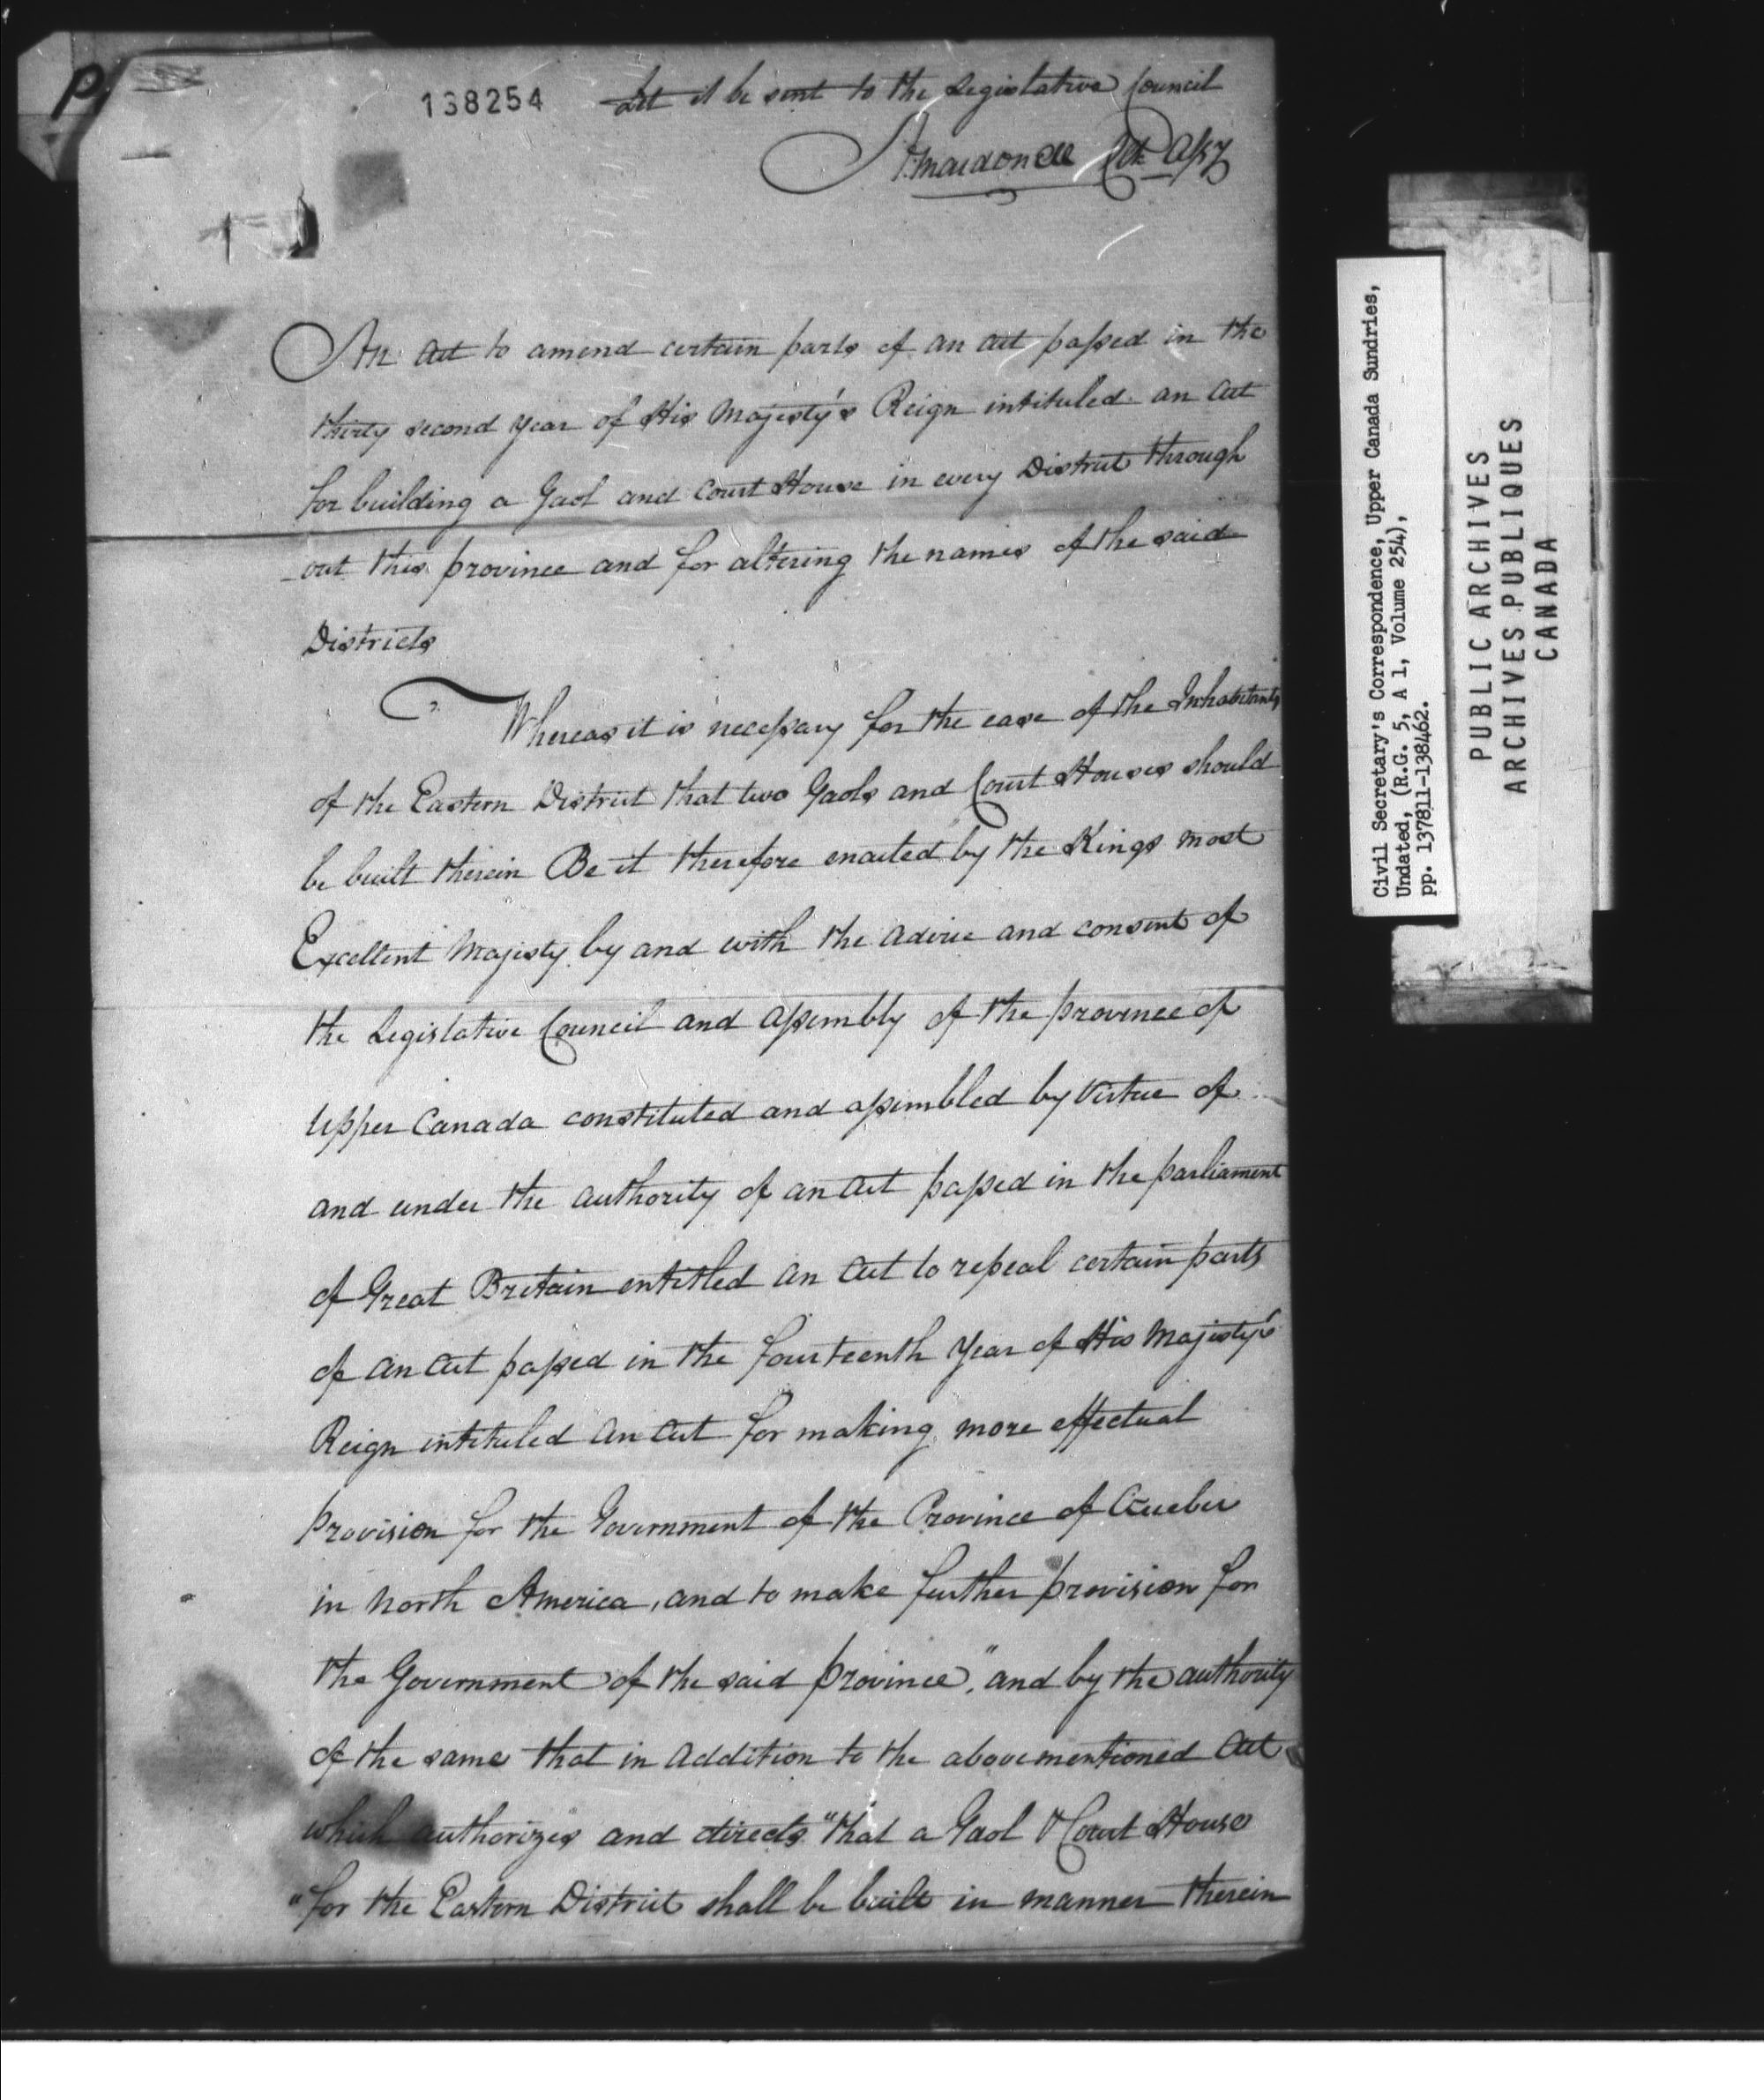 138254
Let it be sent to the Legislative Council
An Act to amend certain parts of an Act passed in the
thirty second year of His Majesty's Reign intituled an Act
for building a Gaol and Court House in every District through
-out this province and for altering the names of the said
Districts
Whereas it is necessary for the ease of the Inhabitants
of the Eastern District that two Gaols and Court Houses should
be built therein Be it therefore enacted by the Kings most
Excellent Majesty by and with the advice and consent of
the Legislative Council and assembly of the province of
Upper Canada constituted and assembled by Virtue of
and under the authority of an Act passed in the parliament
of Great Britain entitled an Act to repeal certain parts
of an Act passed in the fourteenth year of His Majesty's
Reign intituled an Act for making more effectual
provision for the Government of the Province of Quebec
in North America, and to make further provision for
the Government of the said province," and by the authority
of the same that in addition to the above mentioned Act
which authorizes and directs "that a Gaol & Court House
"for the Eastern District shall be built in manner therein
Civil Secretary's Correspondence, Upper Canada Sundries,
Undated, (R.G. 5, A 1, Volume 254),
pp. 137811-138462.
PUBLIC ARCHIVES
ARCHIVES PUBLIQUES
CANADA